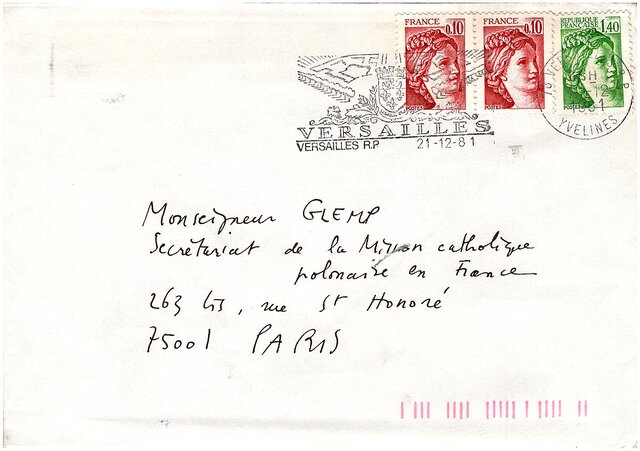 FRANCE 0,10
FRANCE 0,10
REPUBLIQUE FRANÇAISE 1,40
VERSAILLES
VERSAILLES R.P 21-12-81
YVELINES
Monseigneur GLEMP
Secrétariat de la Mission catholique
polonaise en France
263 bis, rue St Honoré
75001 PARIS